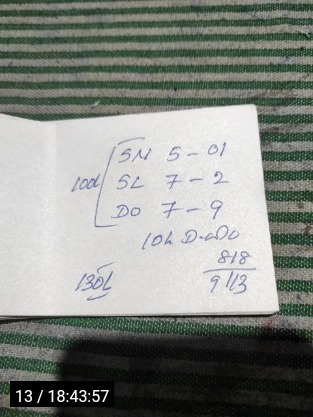 SN 5 - 01
100L SL 7 - 2
DO 7 - 9
10L D-aDo
818
130L 9113
13 / 18:43:57